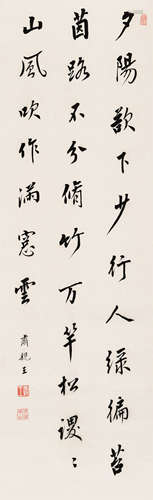 夕陽欲下少行人綠徧苔
茵路不分脩竹万竿松謖〻
山風吹作滿窓雲
肅親王